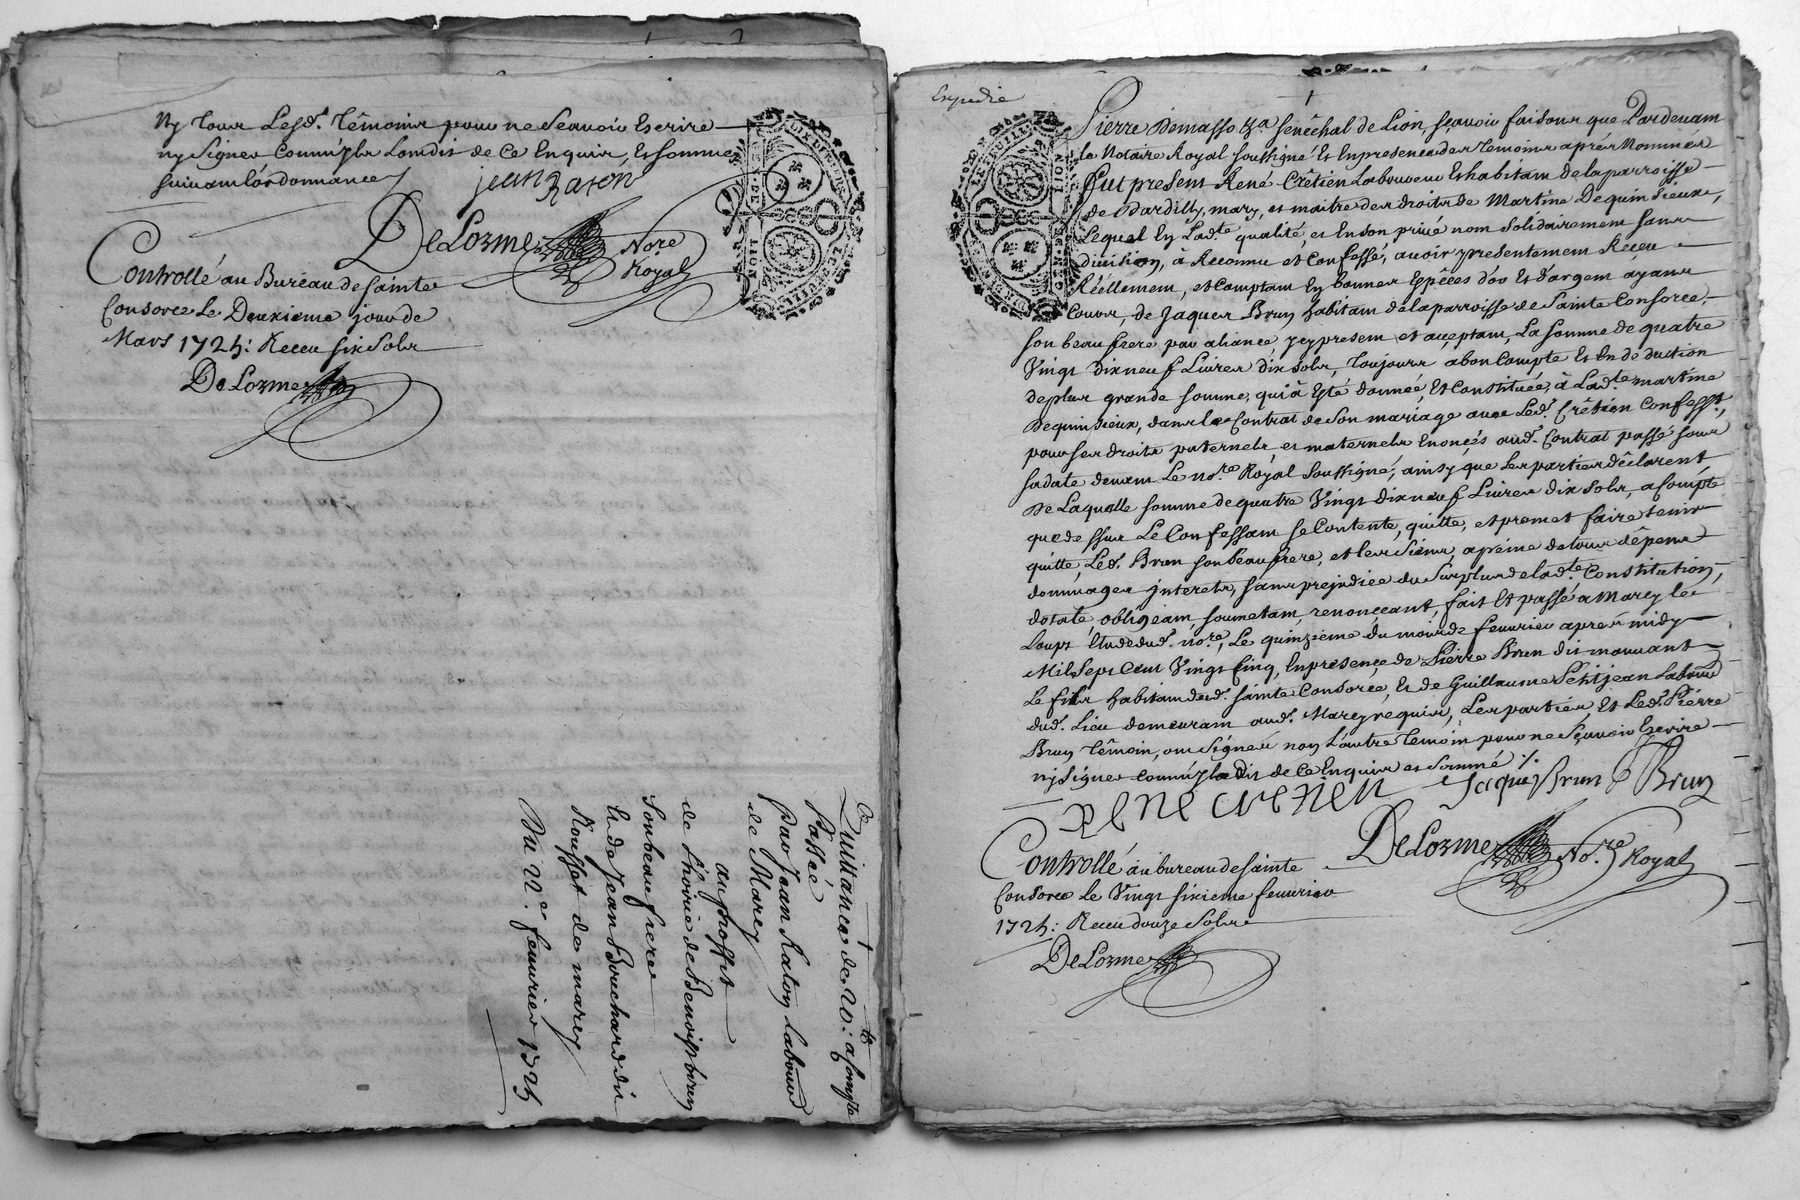 ny tous Lesds. têmoins pour ne Scavoir Escrire
ny Signer Comm'ylz Lon dit de Ce Enquis, Et sommés
suivant L'ordonnance
jean Raton
DeLorme Nore Royal
Controllé au Bureau de Sainte
Consorce Le Deuxieme jour de
Mars 1725: Receu six Sols
DeLorme
Quittance de 20: a Compte
Passée
Par Jean Raton Labour
de Marcy
au proffit
de Benoist
Son beau frere
Et de Jean Bouchard dit
Rousset de marcy
Du 22e. feuvrier 1725
Expedie
Pierre Demasso Sénêchal de Lion, sçavoir faisons que Pardevant
le Notaire Royal soussigné Et En presence des temoins aprés Nommés
fut present René Crêtien Laboureur Et habitant de la parroisse
de Dardilly, mary, et maitre des droits de Martine Dequinsieux,
Lequel En Ladte. qualité, et En son privé nom solidairement sans
division, a Reconnu et Confessé, avoir presentement Receu
Réellement, et Comptant En bonnes Espêces d'or Et d'argent ayans
Cours, de Jaques Brun habitant de la parroisse de Sainte Consorce,
son beau frere par aliance icy present et aceptant, La somme de quatre
Vingt dix neuf Livres dix sols, toujours a bon Compte Et En deduction
de plus grande somme, qui à Esté donnée, Et Constituée, à Ladte. martine
Dequinsieux, dans le Contrat de Son mariage avec Led. Crêtien Confesst.,
pour ses droits paternels, et maternels Enoncés aud. Contrat passé sous
sa date devant Le nore. Royal soussigné, ainsy que Les parties déclarent
De Laquelle somme de quatre Vingt dix neuf Livres dix sols, a Compte
que dessus Le Confessant se Contente, quitte, et promet faire tenir
quitte, Led. Brun son beau frere, et les siens, a peine de tous dêpens
dommages interets, sans prejudice du Surplus de ladte. Constitution,
dotale, obligeant, soumetant, renonceant, fait Et passé a Marcy les
Loups Etude dud. nore., Le quinzieme du mois de feuvrier aprés midy
Mil Sept Cent Vingt Cinq, En presence de Pierre Brun dit mouvant
Le fils habitant dud. Sainte Consorce, Et de Guillaume Petitjean Laboureur
dud. Lieu demeurant aud. Marcy requis, Les parties, Et Led. Pierre
Brun têmoin, ont Signé non L'autre temoin pour ne Sçavoir Escrire
ny Signer Comm'yl a Dit de Ce Enquis et Sommé ./.
Rene cretien Jaque Brun P Brun
DeLorme Nore. Royal
Controllé au bureau de Sainte
Consorce le Vingt sixieme feuvrier
1725: Receu douze Sols
DeLorme